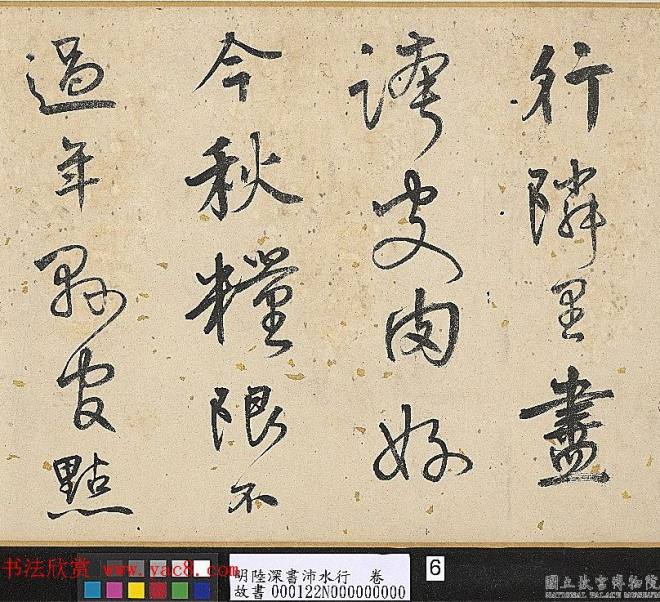 行隣里盡
誇皮肉好
今秋糧限不
過年縣官點
书法欣赏 www.yac8.com
明陸深書沛水行 卷
故書 000122N000000000
6
國立故宮博物院
NATIONAL PALACE MUSEUM